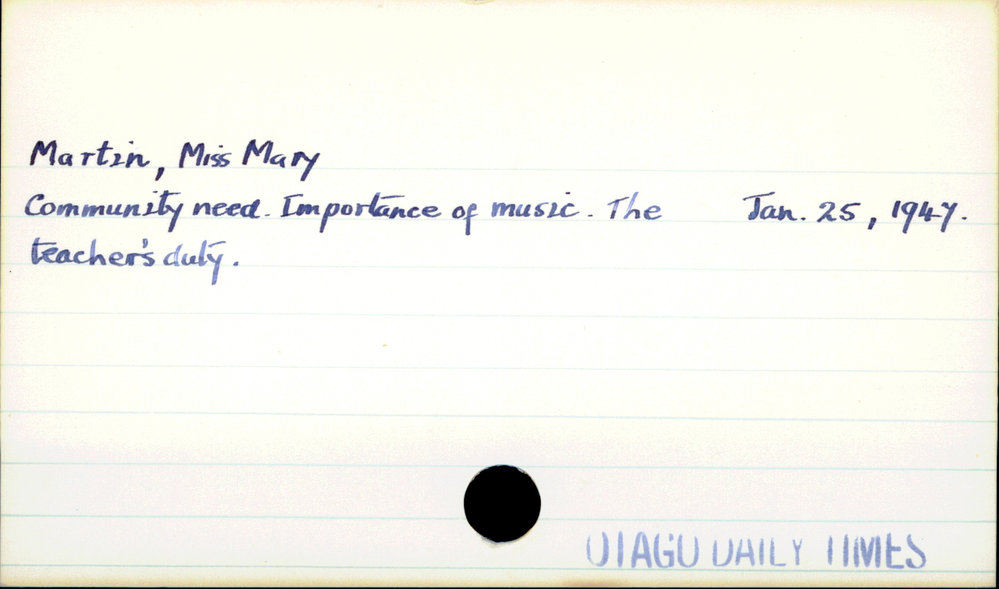 Martin, Miss Mary
Community need. Importance of music. The Jan. 25, 1947.
teacher's duty.
OTAGO DAILY TIMES